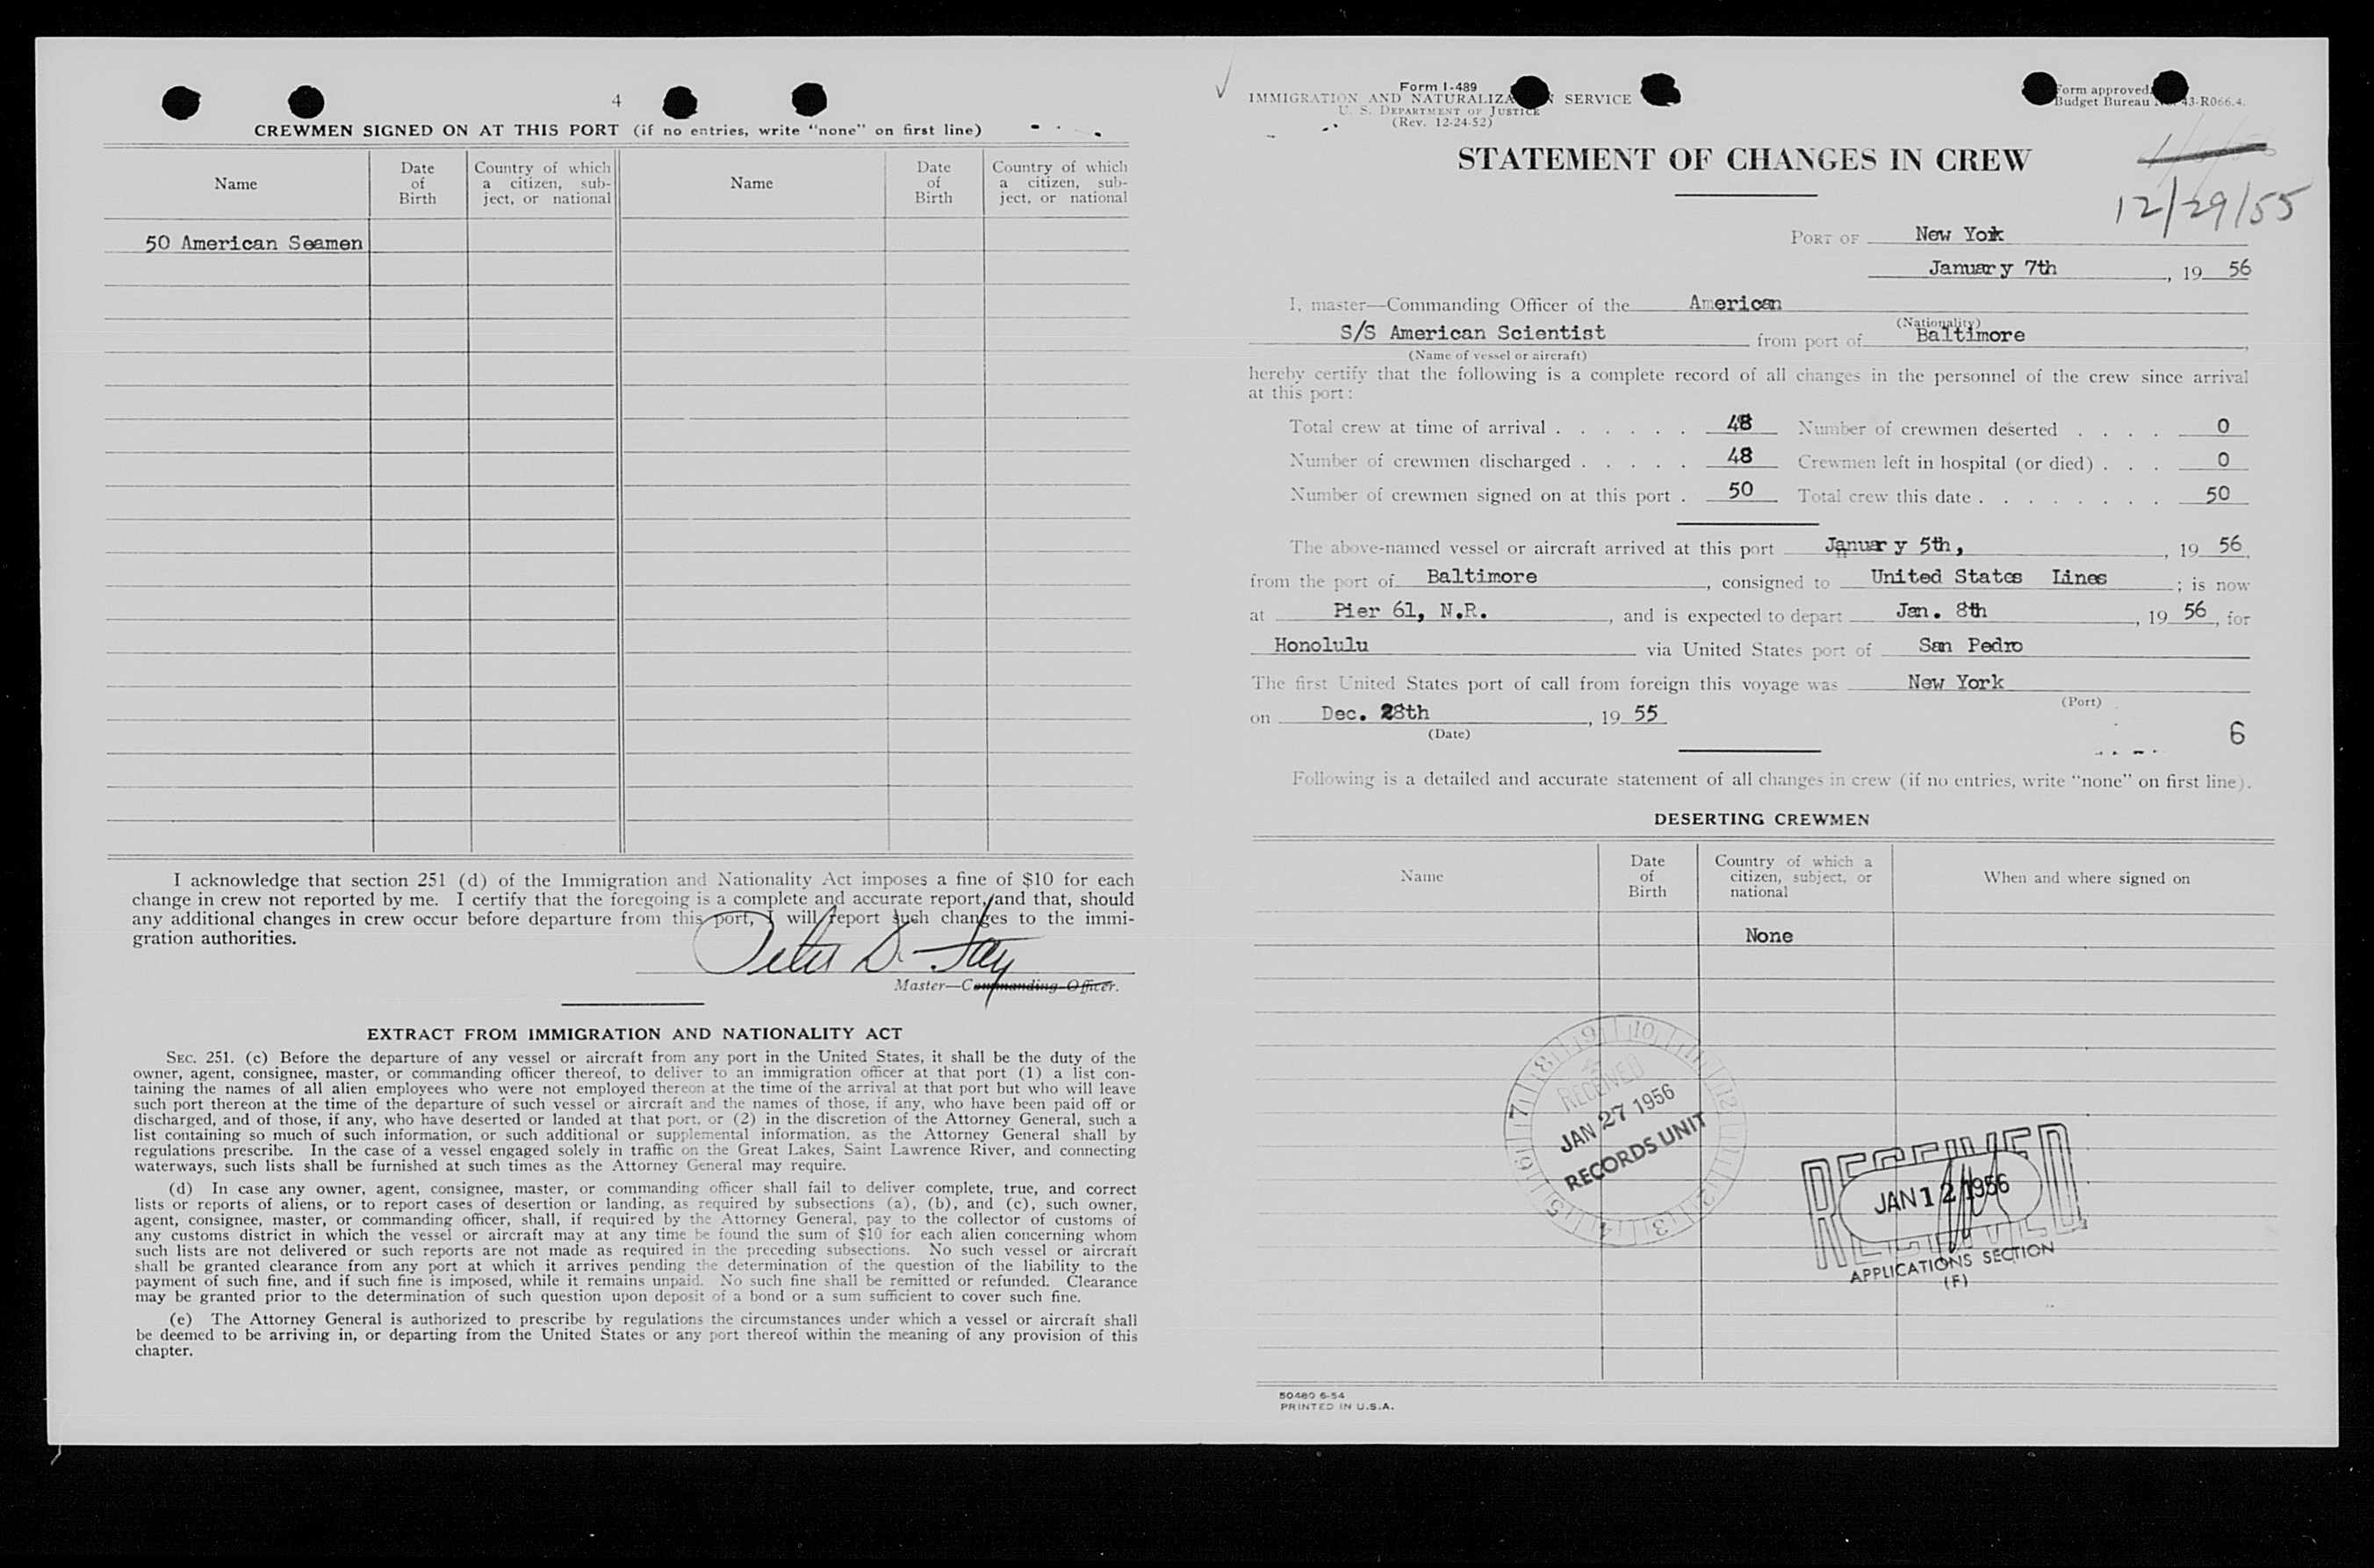 4
CREWMEN SIGNED ON AT THIS PORT (if no entries, write "none" on first line)
Name
Date of Birth
Country of which a citizen, subject, or national
Name
Date of Birth
Country of which a citizen, subject, or national
50 American Seamen
I acknowledge that section 251 (d) of the Immigration and Nationality Act imposes a fine of $10 for each
change in crew not reported by me. I certify that the foregoing is a complete and accurate report, and that, should
any additional changes in crew occur before departure from this port, I will report such changes to the immi-
gration authorities.
Peter D. Fay
Master—Commanding Officer.
EXTRACT FROM IMMIGRATION AND NATIONALITY ACT
SEC. 251. (c) Before the departure of any vessel or aircraft from any port in the United States, it shall be the duty of the
owner, agent, consignee, master, or commanding officer thereof, to deliver to an immigration officer at that port (1) a list con-
taining the names of all alien employees who were not employed thereon at the time of the arrival at that port but who will leave
such port thereon at the time of the departure of such vessel or aircraft and the names of those, if any, who have been paid off or
discharged, and of those, if any, who have deserted or landed at that port, or (2) in the discretion of the Attorney General, such a
list containing so much of such information, or such additional or supplemental information, as the Attorney General shall by
regulations prescribe. In the case of a vessel engaged solely in traffic on the Great Lakes, Saint Lawrence River, and connecting
waterways, such lists shall be furnished at such times as the Attorney General may require.
(d) In case any owner, agent, consignee, master, or commanding officer shall fail to deliver complete, true, and correct
lists or reports of aliens, or to report cases of desertion or landing, as required by subsections (a), (b), and (c), such owner,
agent, consignee, master, or commanding officer, shall, if required by the Attorney General, pay to the collector of customs of
any customs district in which the vessel or aircraft may at any time be found the sum of $10 for each alien concerning whom
such lists are not delivered or such reports are not made as required in the preceding subsections. No such vessel or aircraft
shall be granted clearance from any port at which it arrives pending the determination of the question of the liability to the
payment of such fine, and if such fine is imposed, while it remains unpaid. No such fine shall be remitted or refunded. Clearance
may be granted prior to the determination of such question upon deposit of a bond or a sum sufficient to cover such fine.
(e) The Attorney General is authorized to prescribe by regulations the circumstances under which a vessel or aircraft shall
be deemed to be arriving in, or departing from the United States or any port thereof within the meaning of any provision of this
chapter.
Form I-489
IMMIGRATION AND NATURALIZA N SERVICE
U. S. DEPARTMENT OF JUSTICE
(Rev. 12-24-52)
Form approved.
Budget Bureau 43-R066.4.
STATEMENT OF CHANGES IN CREW
12/29/55
PORT OF New York
January 7th, 19 56
I, master—Commanding Officer of the American
(Nationality)
S/S American Scientist from port of Baltimore,
(Name of vessel or aircraft)
hereby certify that the following is a complete record of all changes in the personnel of the crew since arrival
at this port:
Total crew at time of arrival . . . . . . 48 Number of crewmen deserted . . . . 0
Number of crewmen discharged . . . . . 48 Crewmen left in hospital (or died) . . . 0
Number of crewmen signed on at this port . 50 Total crew this date . . . . . . . . 50
The above-named vessel or aircraft arrived at this port January 5th, , 19 56,
from the port of Baltimore, consigned to United States Lines; is now
at Pier 61, N.R., and is expected to depart Jan. 8th, 19 56, for
Honolulu via United States port of San Pedro
The first United States port of call from foreign this voyage was New York
(Port)
on Dec. 28th, 19 55
(Date)
6
Following is a detailed and accurate statement of all changes in crew (if no entries, write "none" on first line).
DESERTING CREWMEN
Name
Date of Birth
Country of which a citizen, subject, or national
When and where signed on
None
RECEIVED
JAN 27 1956
RECORDS UNIT
RECEIVED
JAN 12 1956
APPLICATIONS SECTION
(F)
50480 6-54
PRINTED IN U.S.A.